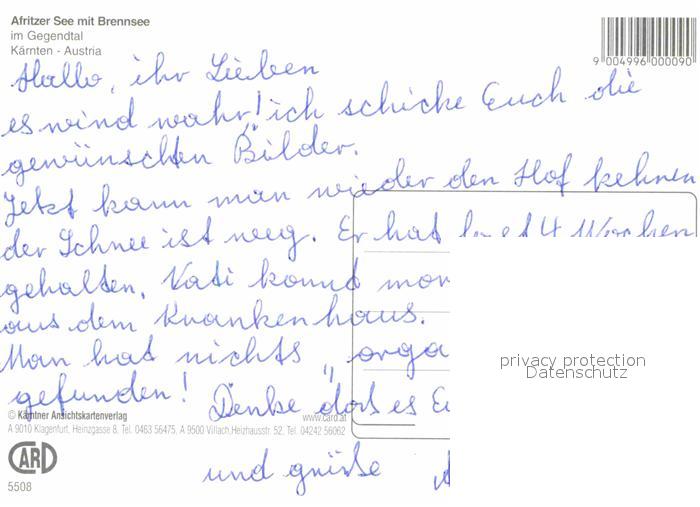 Afritzer See mit Brennsee
im Gegendtal
Kärnten - Austria
9 004996 000090
Hallo, ihr Lieben
es wird wahr! ich schicke Euch die
gewünschten Bilder.
Jetzt kann man wieder den Hof kehren
der Schnee ist weg. Er hat 4 Wochen
gehalten. Vati kommt mor
aus dem Krankenhaus.
Man hat nichts "orga
gefunden! Denke das es Eu
und grüße
privacy protection
Datenschutz
© Kärntner Ansichtskartenverlag
www.card.at
A 9010 Klagenfurt, Heinzgasse 8. Tel. 0463 56475, A 9500 Villach, Heizhausstr. 52. Tel. 04242 56062
CARD
5508